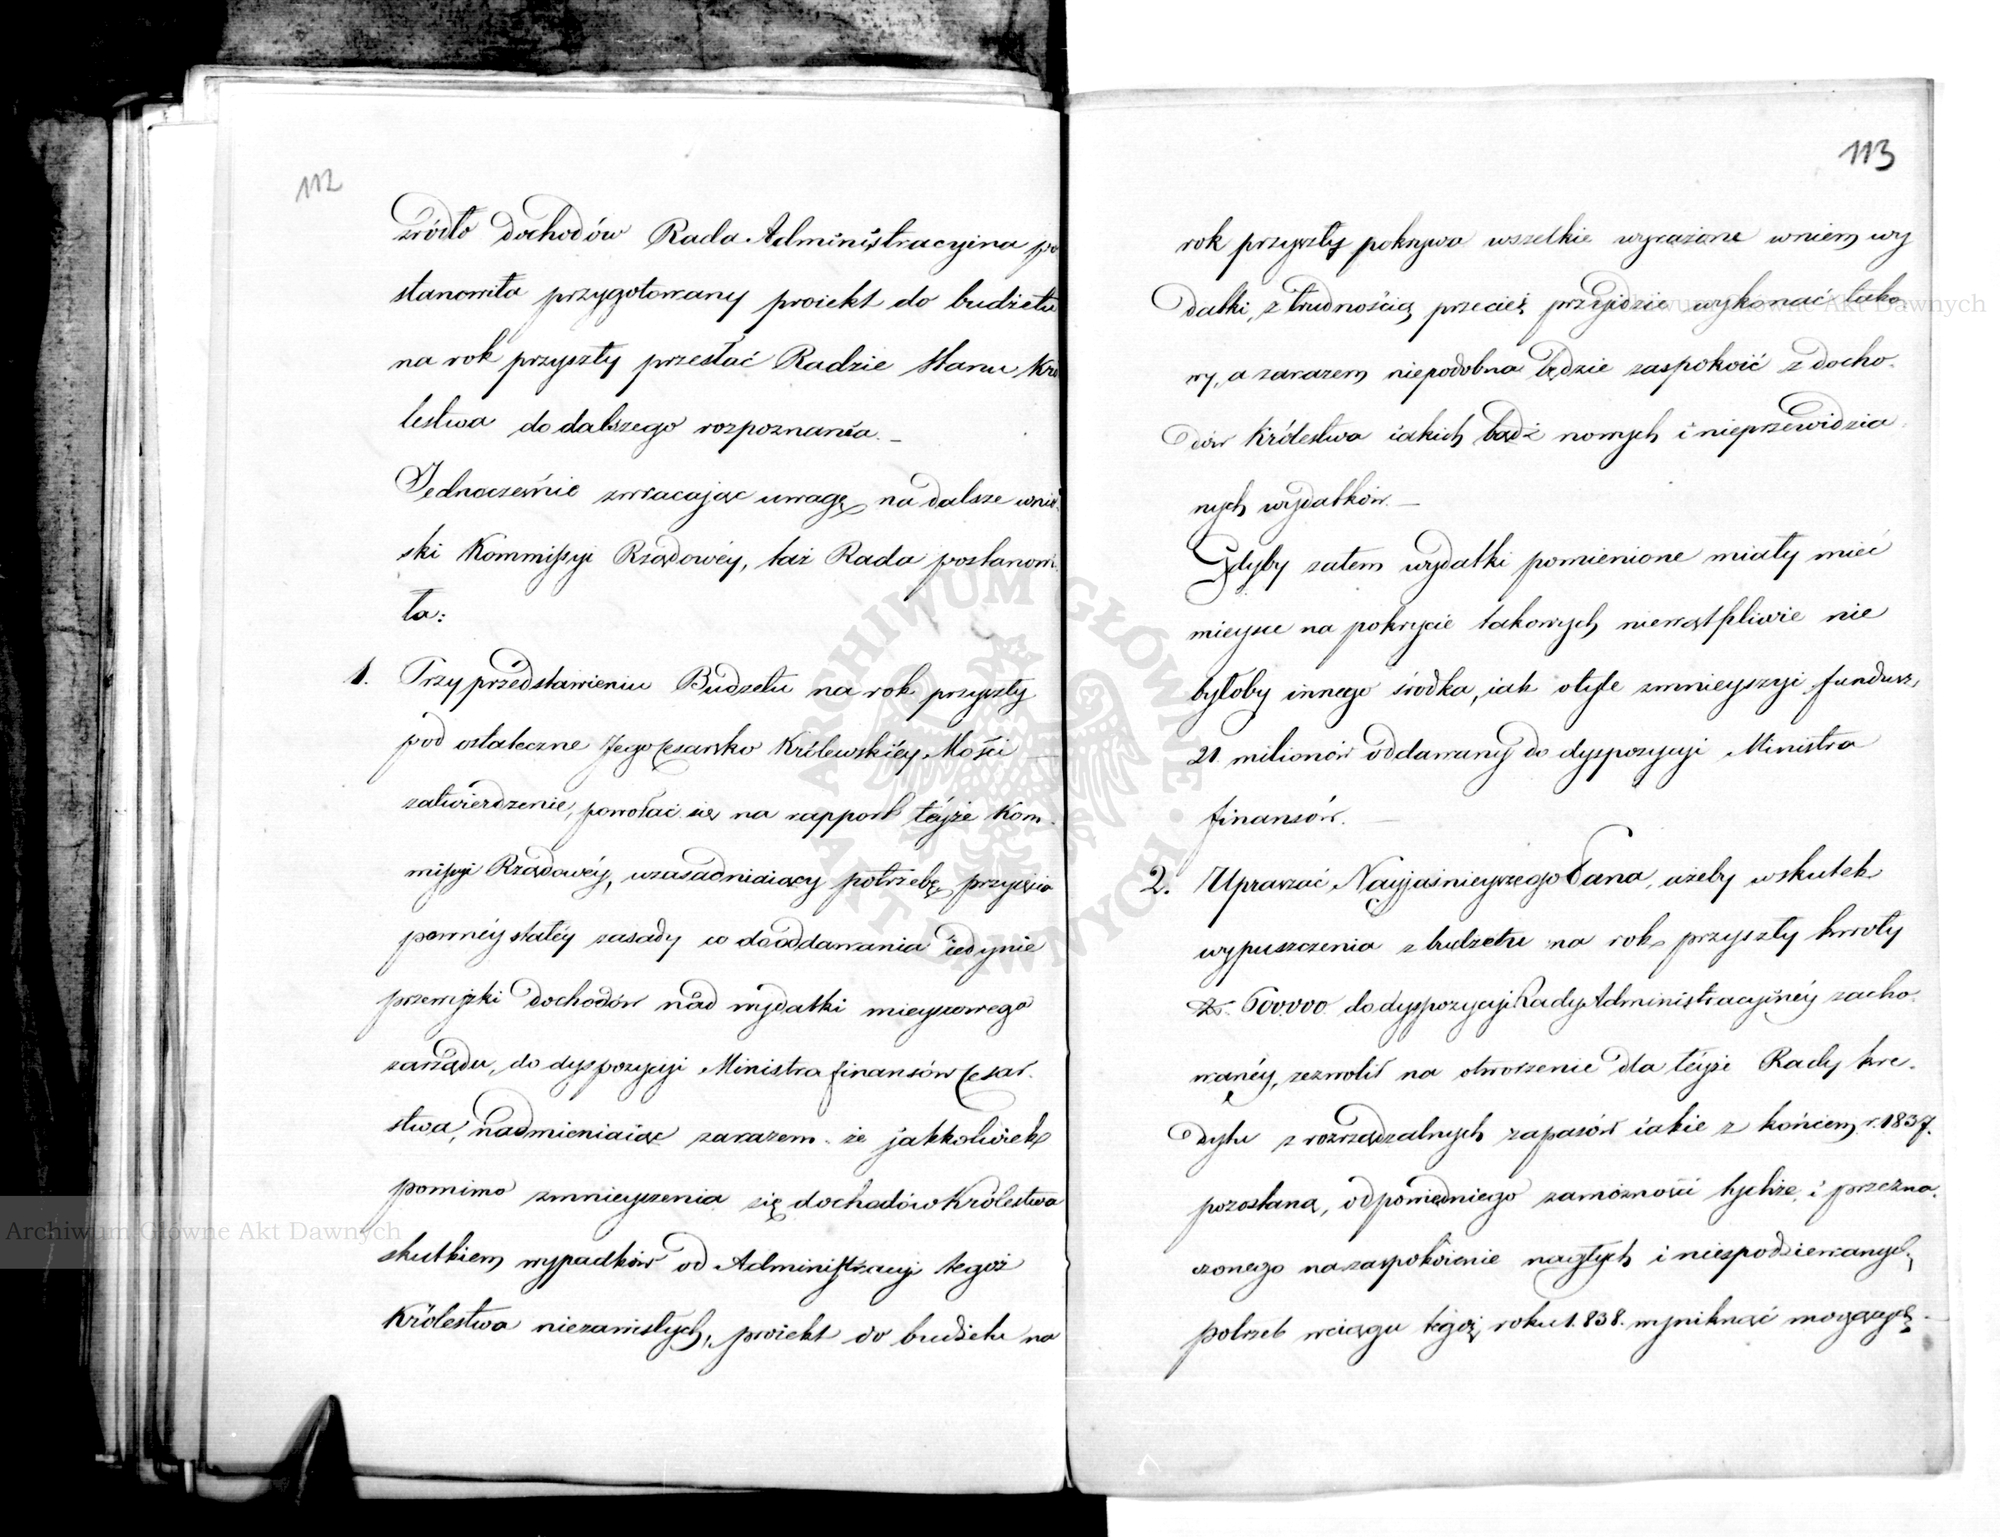 112
źródło dochodów Rada Administracyina po
stanowiła przygotowany proiekt do budżetu
na rok przyszły przesłać Radzie Stanu Kró
lestwa do dalszego rozpoznania. –
Jednocześnie zwracając uwagę na dalsze wnio
ski Kommissyi Rządowéy, taż Rada postanowi
ła:
1. Przy przedstawieniu Budżetu na rok przyszły
pod ostateczne Jego Cesarsko Królewskiéy Mości
zatwierdzenie, powołać się na rapport téyże Kom-
missyi Rządowéy, uzasadniaiący potrzebę przyięcia
pewnéy stałéy zasady co do oddawania iedynie
przewyżki dochodów nad wydatki mieyscowego
zarządu, do dyspozycyi Ministra finansów Cesar-
stwa, nadmieniaiąc zarazem że jakkolwiek
pomimo zmnieyszenia się dochodów Królestwa
skutkiem wypadków od Administracyi tegoż
Królestwa niezawisłych, proiekt do budżetu na
113
rok przyszły pokrywa wszelkie wyrażone w niem wy
datki, z trudnością przecież przyidzie wykonać tako
wy, a zarazem niepodobna będzie zaspokoić z docho-
dów Królestwa iakich bądź nowych i nieprzewidzia
nych wydatków. –
Gdyby zatem wydatki pomienione miały mieć
mieysce na pokrycie takowych niewątpliwie nie
byłoby innego środka, iak otyle zmnieyszyć fundusz,
21. milionów oddawany do dyspozycyi Ministra
finansów. –
2. Upraszać Nayjaśnieyszego Pana, ażeby w skutek
wypuszczenia z budżetu na rok przyszły kwoty
Zł. 600.000. do dyspozycyi Rady Administracyinéy zacho-
wanéy, zezwolił na otworzenie dla téyże Rady kre-
dytu z rozrządzalnych zapasów iakie z końcem r. 1837.
pozostaną, odpowiedniego zamożności tychże, i przezna-
czonego na zaspokoienie nagłych i niespodziewanych
potrzeb w ciągu tegoż roku 1838. wyniknąć mogących. –
Archiwum Główne Akt Dawnych
Archiwum Główne Akt Dawnych
ARCHIWUM GŁÓWNE AKT DAWNYCH